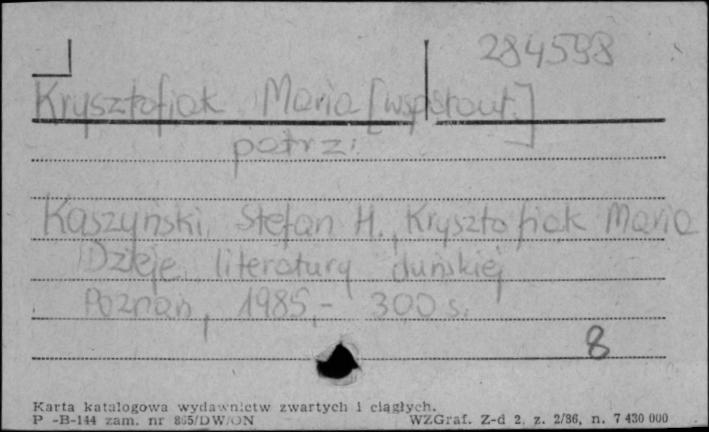 284598
Krysztofiak Maria [współaut.]
patrz:
Kaszyński, Stefan H., Krysztofiak Maria
Dzieje literatury duńskiej
Poznań, 1985,- 300 s.
8
Karta katalogowa wydawnictw zwartych i ciągłych.
P -B-144 zam. nr 865/DW/ON WZGraf. Z-d 2. z. 2/86, n. 7 430 000